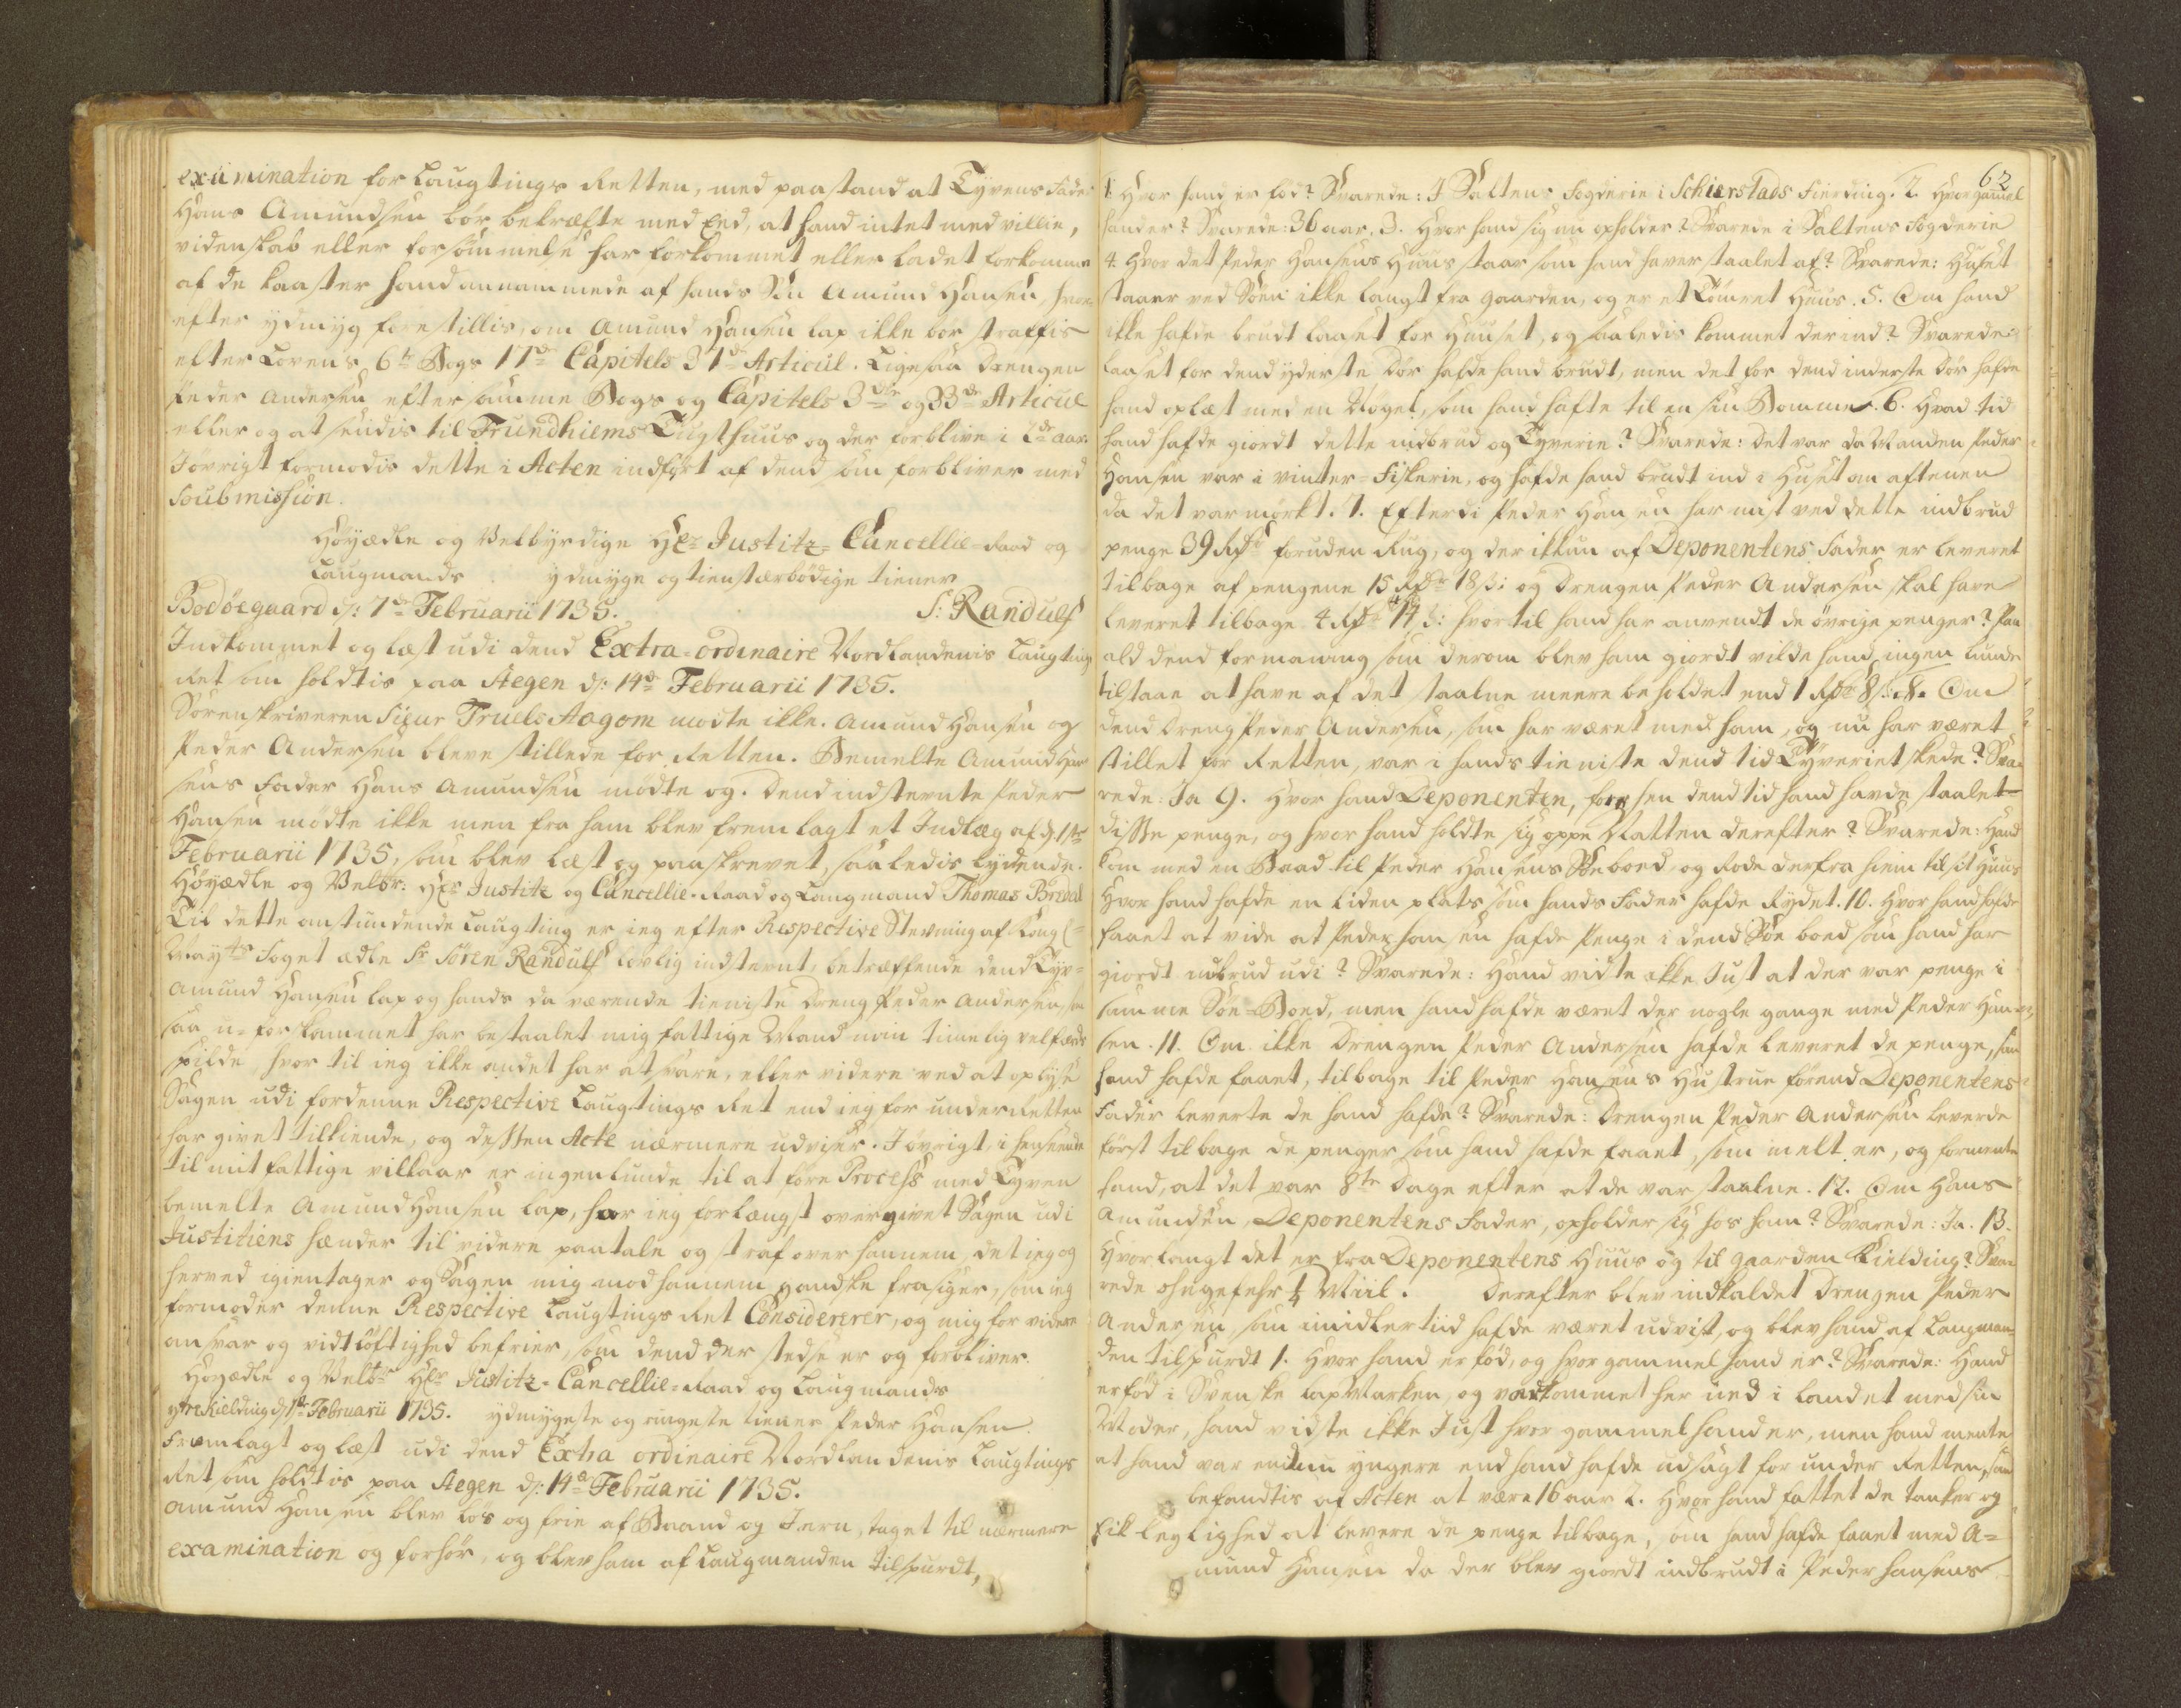 examination for Laugtings Retten, med paastand at Tyvens Fader
Hans Amundsen bör bekræfte med Eed, at hand intet med villie,
videnskab eller forsömmelse har forkommet eller ladet forkomme
af de kaaster hand annammede af hands Sön Amund Hansen, hvor
efter ydmyg forestillis, om Amund Hansen lap ikke bör straffis
efter Lovens 6te Bogs 17de Capitels 37de Articul. Ligesaa Drengen
Peder Andersen efter samme Bogs og Capitels 3die og 33de Articul
eller og at sendis til Trundhiems Tugthuus og der forblive i 2de aar.
I övrigt formodis dette i Acten indfört af dend som forbliver med
Soubmission.
Höyædle og Velbyrdige Hr Justitz- Cancellie-Raad og
Laugmands ydmyge og tienstærbödige tiener
Bodöegaard d: 7de Februarii 1735. S: Randulf
Indkommet og læst udi dend Extra-ordinaire Nordlandenis Laugtings
Ret som holdtis paa Stegen d: 14de Februarii 1735.
Sörenskriveren Sieur Truels Aagom mödte ikke. Amund Hansen og
Peder Andersen bleve stillede for Retten. Bemelte Amund Han
sens Fader Hans Amundsen mödte og. Dend indstevnte Peder
Hansen mödte ikke men fra ham blev fremlagt et Indlæg af d: 1ste
Februarii 1735, som blev læst og paaskrevet, saaledis lydende.
Höyædle og Velbr: Hr Justitz og Cancellie-Raad og Laugmand Thomas Bredal
Til dette anstundende Laugting er ieg efter Respective Stevning af Kongl=
Mayts Foget ædle Sr Sören Randulf lovlig indstevnt, betræffende dend Tyv=
Amund Hansen lap og hands da værende tieniste Dreng Peder Andersen, som
saa u-forskammet har bestaalet mig fattige Mand min timelig velfærd
spilde, hvor til ieg ikke andet har at svare, eller videre ved at oplyse
Sagen udi for denne Respective Laugtings Ret end ieg for underretten
har givet tilkiende, og dessen Acte nærmere udviser. I övrigt, i henseende
til mit fattige villkaar er ingenlunde til at före Process med Tyven
bemelte Amund Hansen lap, har ieg forlængst overgivet Sagen udi
Justitiens hænder til videre paatale og straf over hannem, det ieg og
herved igientager og Sagen mig mod hannem gandske frasiger, som ieg
formoder denne Respective Laugtings Ret Considererer, og mig for videre
ansvar og vidtlöftighed befrier, som dend der stedse er og forbliver.
Höyædle og Velbr Hr Justitz-Cancellie-Raad og Laugmands
ytre Kielding d: 1ste Februarii 1735. ydmygeste og ringeste tiener Peder Hansen.
Fremlagt og læst udi dend Extra ordinaire Nordlandenis Laugtings
Ret som holdtis paa Stegen d: 14de Februarii 1735.
Amund Hansen blev lös og frie af Baand og Jern, taget til nærmere
examination og forhör, og blev ham af Laugmanden tilspurdt,
62
1. Hvor hand er föd? Svarede: I Saltens Fogderie i Schierstads Fierding. 2. Hvor gammel
hand er? Svarede: 36 aar. 3. Hvor hand sig nu opholder? Svarede i Saltens Fogderie
4. Hvor det Peder Hansens Huus staar som hand haver staalet af? Svarede: Huset
staaer ved Söen ikke langt fra gaarden, og er et Tömret Huus. 5. Om hand
ikke hafde brudt laaset for Huuset, og saaledis kommet derind? Svarede:
laaset for dend yderste Dör hafde hand brudt, men det for dend inderste Dör hafde
hand oplæt med en Nögel, som hand hafte til en sin Komme. 6. Hvad tid
hand hafde giordt dette indbrud og Tyverie? Svarede: det var da Manden Peder
Hansen var i vinter-Fiskerie, og hafde hand brudt ind i Huset om aftenen
da det var mörkt. 7. Efterdi Peder Hansen har mist ved dette indbrud
penge 39 Rdr foruden Rug, og der ikkun af Deponentens Fader er leveret
tilbage af pengene 15 Rdr 18 s: og Drengen Peder Andersen skal have
leveret tilbage 4 Rdr 14 s: hvortil hand har anvendt de övrige penger? Paa
ald dend formaning som derom blev ham giordt vilde hand ingenlunde
tilstaae at have af det staalne meere beholdet end 1 Rdr 8 s. 8. Om
dend Dreng Peder Andersen, som har været med ham, og nu har været
stillet for Retten, var i hands tieniste dend tid Tyveriet skede? Sva=
rede: Ja 9. Hvor hand Deponenten, foer hen dend tid hand havde staalet
disse penge, og hvor hand holdte sig oppe Natten derefter? Svarede: Hand
kom med en Baad til Peder Hansens Söeboed, og Rode derfra hiem til sit Huus
Hvor hand hafde en liden plats som hands Fader hafde Rydet. 10. Hvor hand hafde
faaet at vide at Peder Hansen hafde Penge i dend Söe boed som hand har
giordt indbrud udi? Svarede: Hand vidste ikke Just at der var penge i
samme Söe-Boed, men hand hafde været der nogle gange med Peder Han=
sen. 11. Om ikke Drengen Peder Andersen hafde leveret de penge, som
hand hafde faaet, tilbage til Peder Hansens Hustrue förend Deponentens
Fader leverte de hand hafde? Svarede: Drengen Peder Andersen leverde
först tilbage de penger som hand hafde faaet, som melt er, og formente
hand, at det var 8te Dage efter at de var staalne. 12. Om Hans
Amundsen, Deponentens Fader, opholder sig hos ham? Svarede: Ja. 13.
Hvor langt det er fra Deponentens Huus og til gaarden Kielding? Sva=
rede ohngefehr 1/4 Miil. Derefter blev indkaldet Drengen Peder
Andersen, som imidlertiid hafde været udvist, og blev hand af Laugman=
den tilspurdt 1. Hvor hand er föd, og hvor gammel hand er? Svarede: Hand
er föd i Svenske LapMarken, og var kommet her ned i landet med sin
Moder, hand vidste ikke Just hvor gammel hand er, men hand mente
at hand var endnu yngere end hand hafde udsagt for under Retten, som
befandtis af Acten at være 16 aar 2. Hvor hand fattet de tanker og
fik leylighed at levere de penge tilbage, som hand hafde faaet med A=
mund Hansen da der blev giordt indbrudt i Peder Hansens